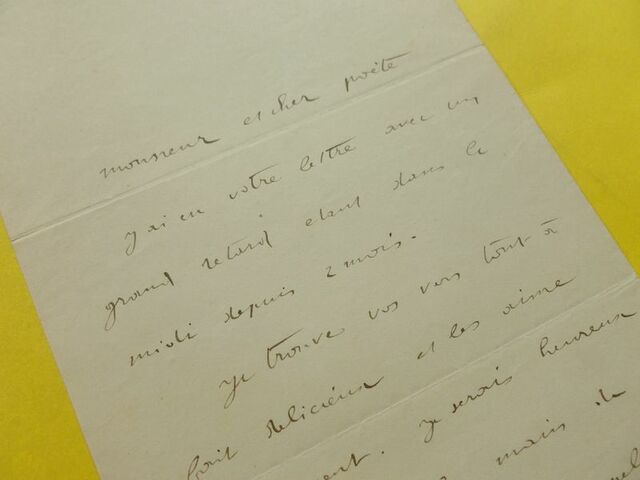 monsieur et cher poète
j'ai eu votre lettre avec un
grand retard étant dans le
midi depuis 2 mois.
je trouve vos vers tout à
fait délicieux et les aime
je serais heureux
mais de